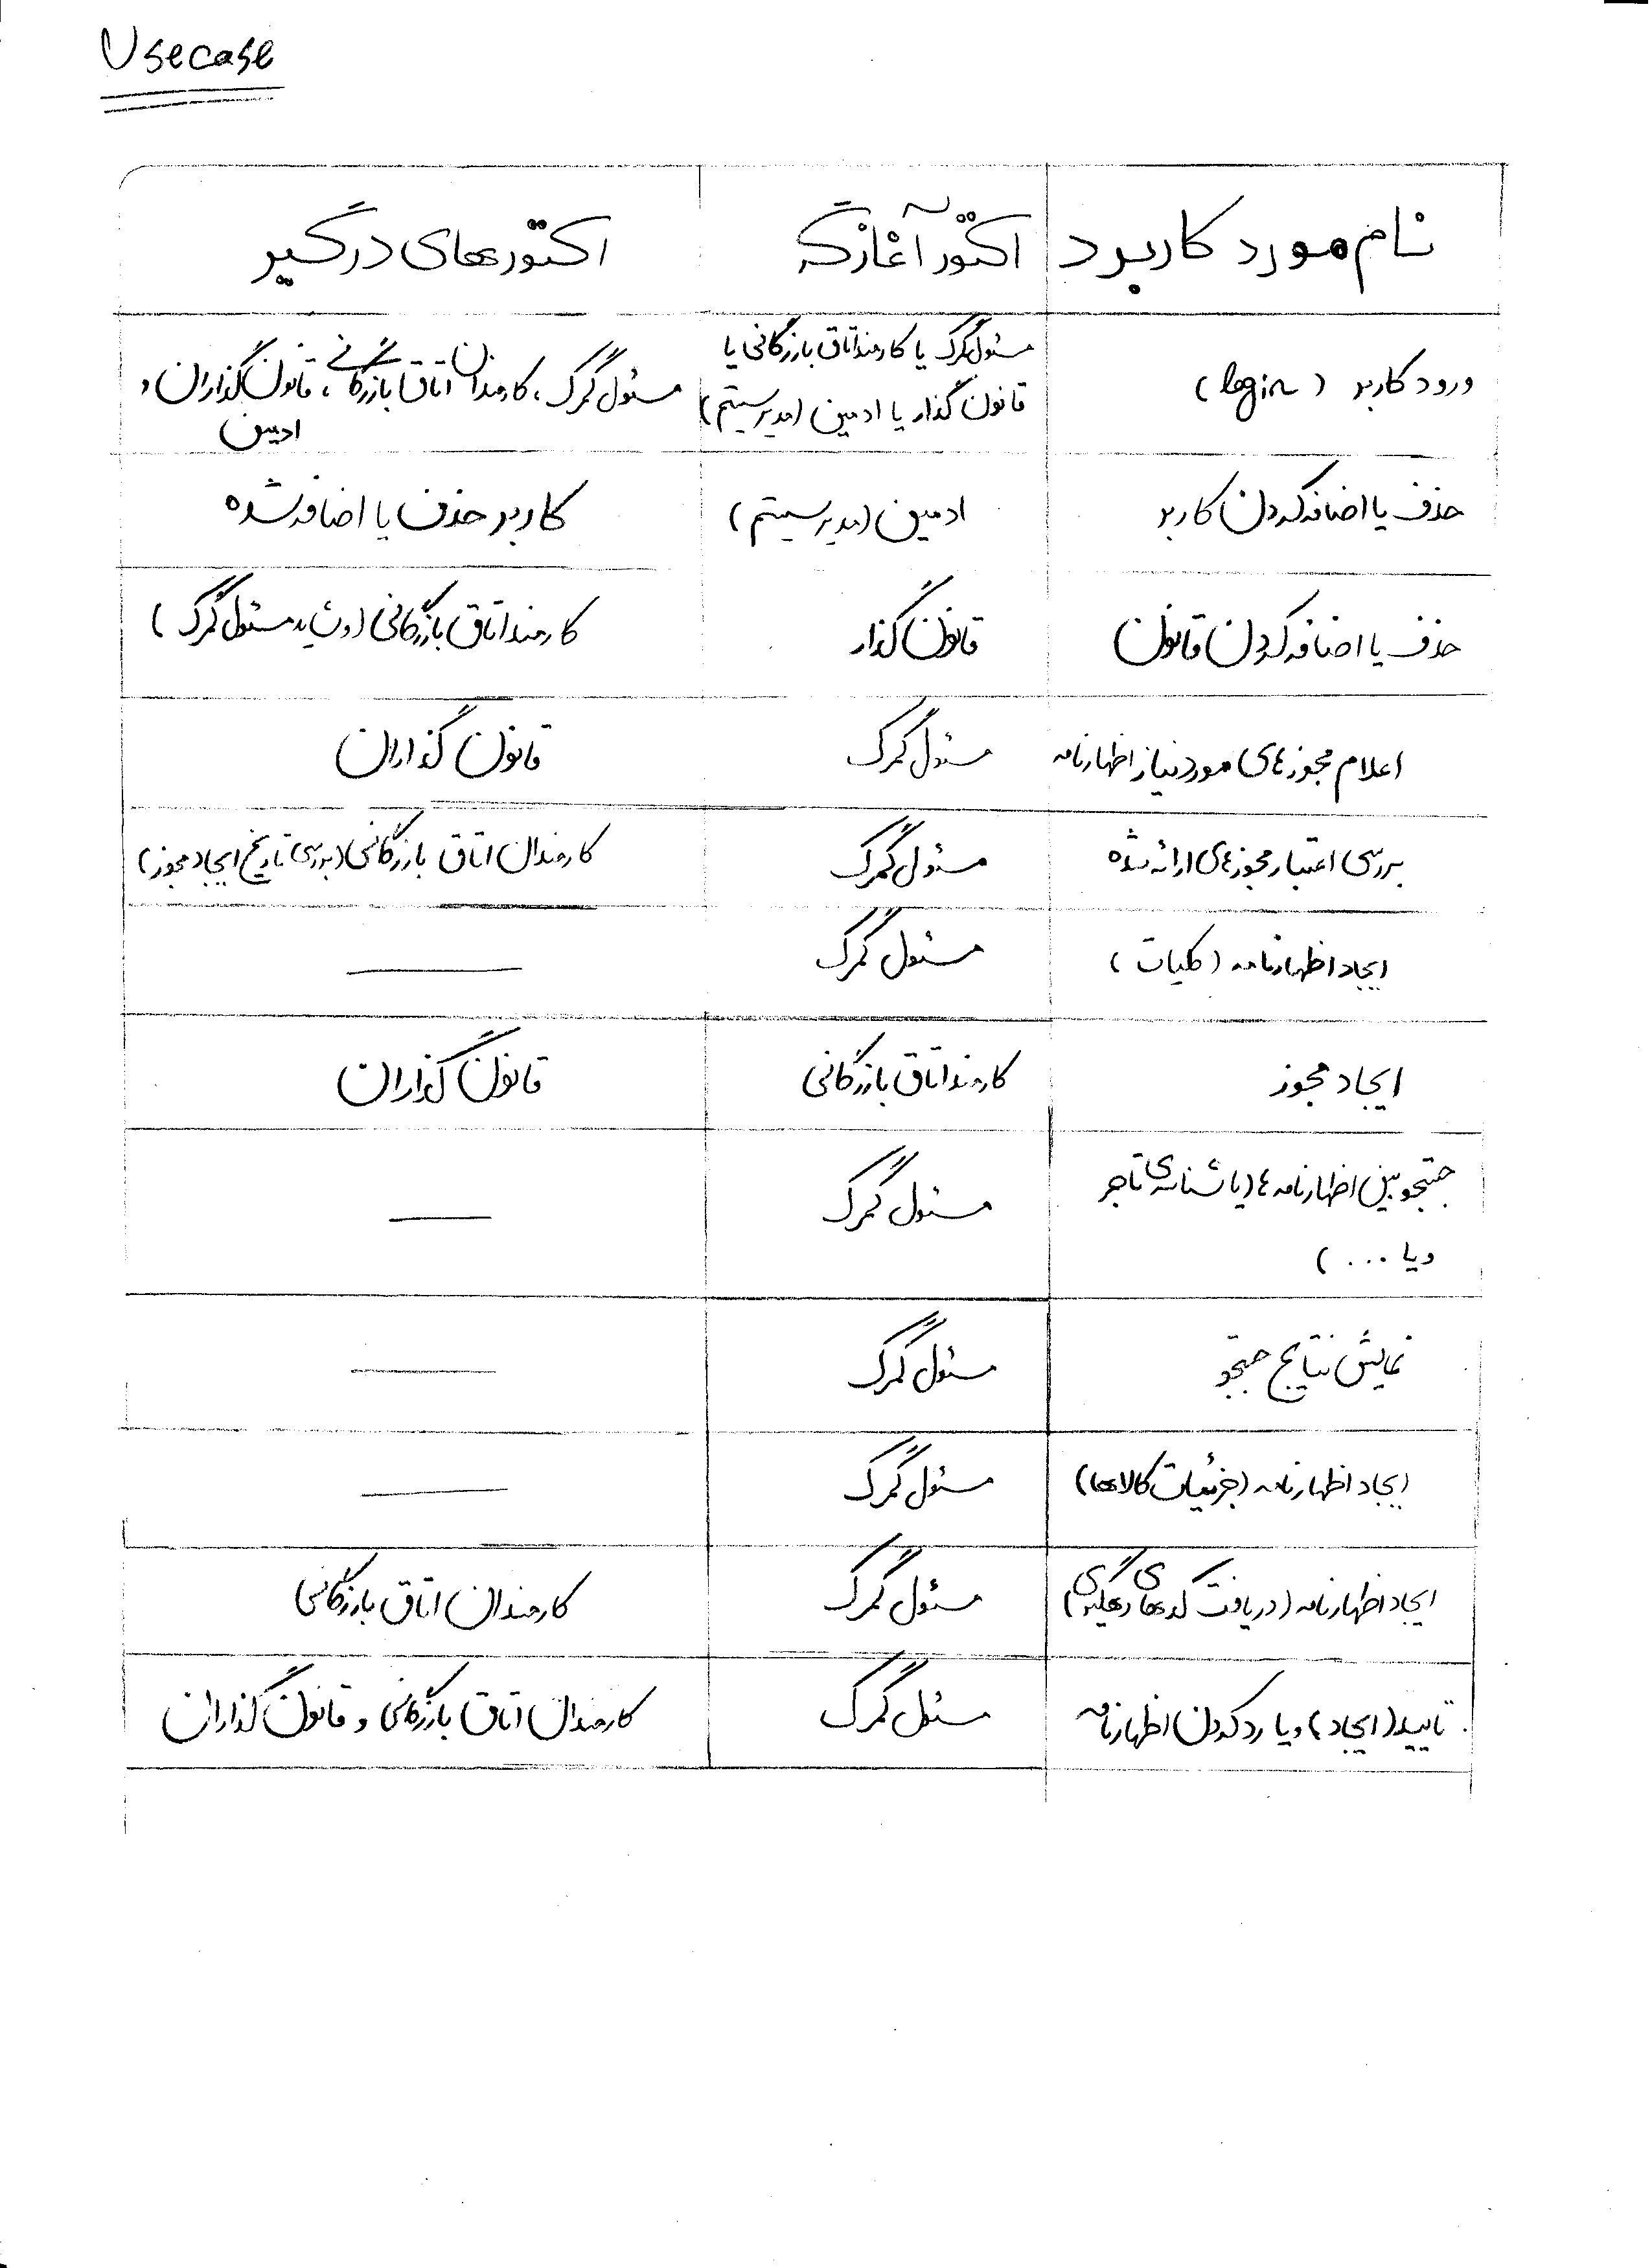 Usecase
نام مورد کاربرد | اکتور آغازگر | اکتورهای درگیر
ورود کاربر (login) | مسئول گمرک یا کارمند اتاق بازرگانی یا
قانون گذار یا ادمین (مدیر سیستم) | مسئول گمرک، کارمندان اتاق بازرگانی، قانون گذاران و
ادمین
حذف یا اضافه کردن کاربر | ادمین (مدیر سیستم) | کاربر حذف یا اضافه شده
حذف یا اضافه کردن قانون | قانون گذار | کارمند اتاق بازرگانی (و شاید مسئول گمرک)
اعلام مجوزهای مورد نیاز اظهارنامه | مسئول گمرک | قانون گذاران
بررسی اعتبار مجوزهای ارائه شده | مسئول گمرک | کارمندان اتاق بازرگانی (بررسی تاریخ ایجاد مجوز)
ایجاد اظهارنامه (کلیات) | مسئول گمرک | ——
ایجاد مجوز | کارمند اتاق بازرگانی | قانون گذاران
جستجو بین اظهارنامه ها (با شناسه‌ی تاجر
و یا ...) | مسئول گمرک | ——
نمایش نتایج جستجو | مسئول گمرک | ——
ایجاد اظهارنامه (جزئیات کالاها) | مسئول گمرک | ——
ایجاد اظهارنامه (دریافت کدهای رهگیری) | مسئول گمرک | کارمندان اتاق بازرگانی
تایید (ایجاد) و یا رد کردن اظهارنامه | مسئول گمرک | کارمندان اتاق بازرگانی و قانون گذاران